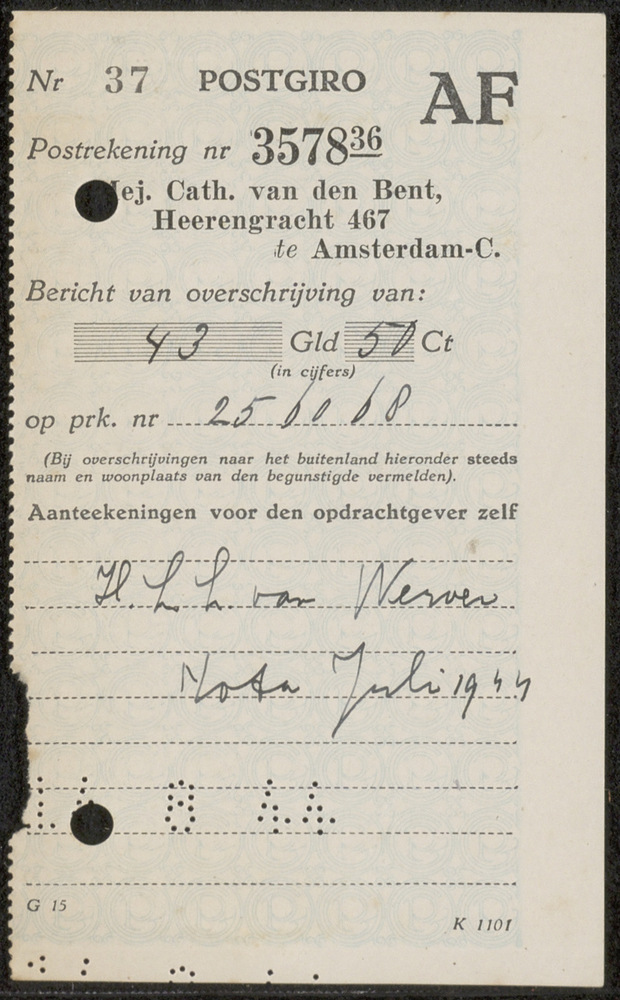 Nr 37 POSTGIRO AF
Postrekening nr 357836
Mej. Cath. van den Bent,
Heerengracht 467
te Amsterdam-C.
Bericht van overschrijving van:
43 Gld 50 Ct
(in cijfers)
op prk. nr
(Bij overschrijvingen naar het buitenland hieronder steeds
naam en woonplaats van den begunstigde vermelden).
Aanteekeningen voor den opdrachtgever zelf
H. L. L. van Werven
Nota Juli 1944
8 44
G 15
K 1101